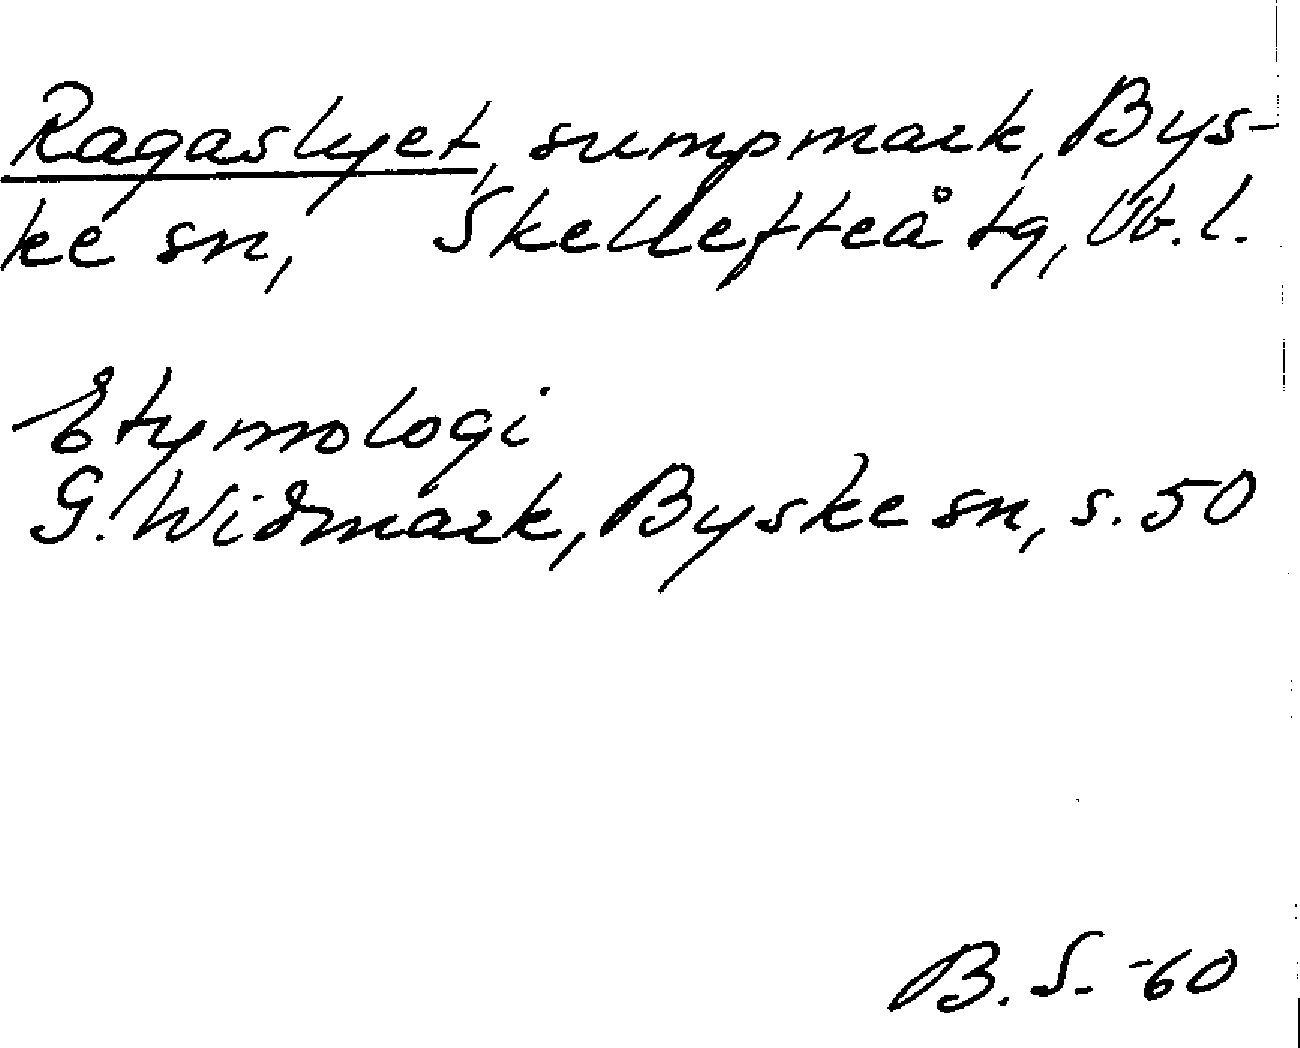 Ragaslyet, sumpmark, Bys-
ke sn, Skellefteå tg, Vb. l.
Etymologi
G. Widmark, Byske sn, s. 50
B. S. -60